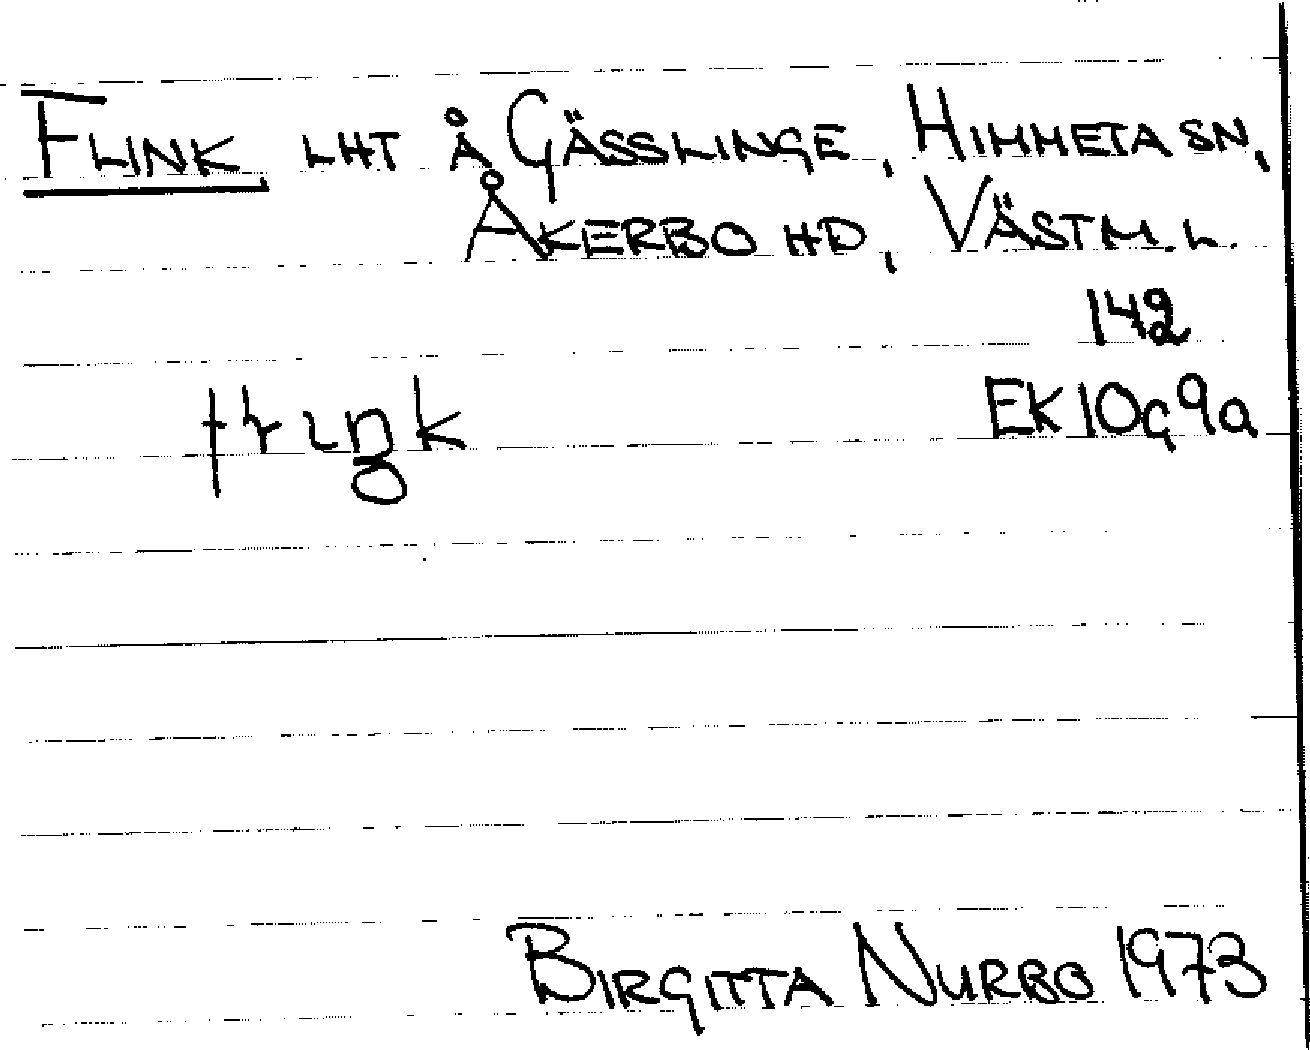 FLINK LHT Å GÄSSLINGE, HIMMETA SN,
ÅKERBO HD, VÄSTM. L.
142
EK10G9a
BIRGITTA NURBO 1973